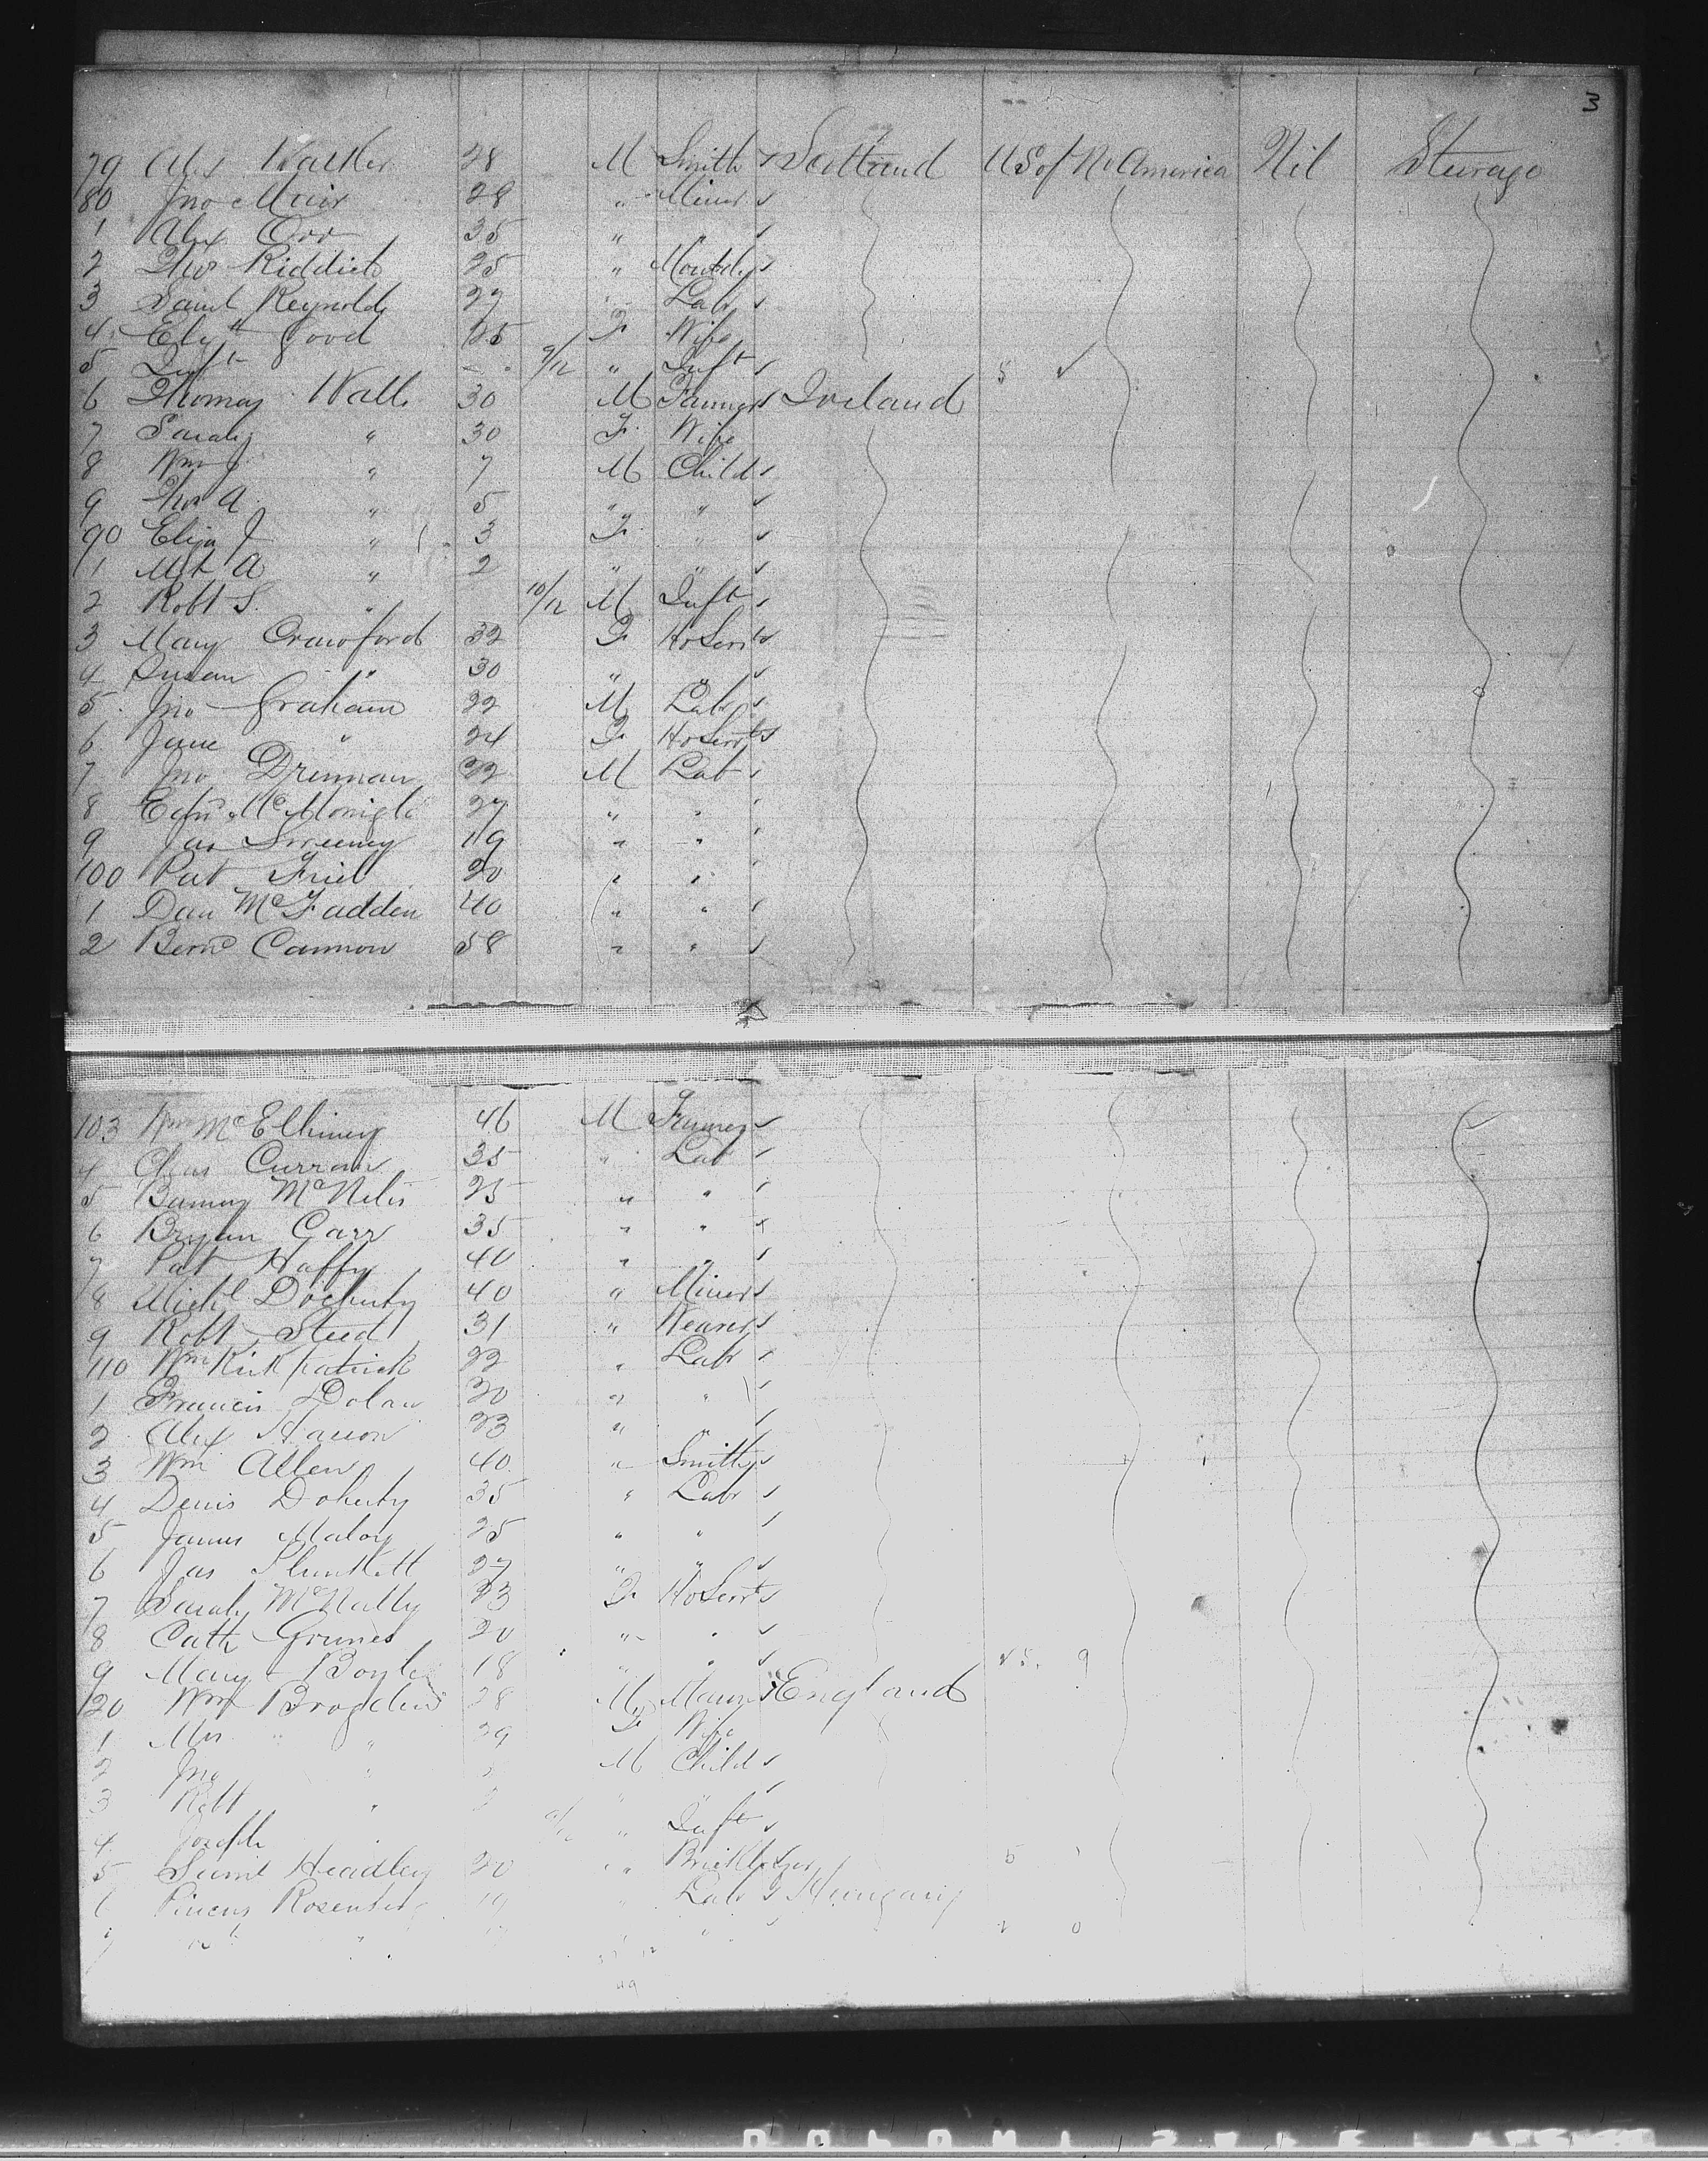 3
79 Alex Walker 28 M Smith Scotland US of No America Nil Steerage
80 Jno Muir 28 " Miner
1 Alex Orr 35 " "
2 Thos Riddick 25 "
3 Daniel Reynolds 27 " Labr
4 Elizth Good 25 F Wife
5 Inft - 9/12 " Inft 5 ✓
6 Thomas Wall 30 M Farmer Ireland
7 Sarah " 30 F Wife
8 Wm J " 7 M Child
9 Thos A " 5 " "
90 Eliza J " 3 F "
1 Mgt A " 2 " "
2 Robt S. " 10/12 M Inft
3 Mary Crawford 32 F HoServt
4 Susan " 30 " "
5 Jno Graham 22 M Labr
6 Jane " 24 F HoServt
7 Jno Drennan 22 M Lab
8 McMonigle 27 " "
9 Jas Sweeney 19 " "
100 Pat Friel 20 " "
1 Dan McFadden 40 " "
2 Bernd Cannon 58 " "
103 Wm McElhiney 46 M Farmer
4 Chas Curran 35 " Lab
5 Barney McNelis 25 " "
6 Bryan Carr 35 " "
7 Pat Haffy 40 " "
8 Michl Docherty 40 " Miner
9 Robt Steed 31 " Weaver
110 Wm Kirkpatrick 22 " Labr
1 Francis Dolan 20 " "
2 Alex 23 " "
3 Wm Allen 40 " Smith
4 Denis Doherty 35 " Labr
5 James Maloy 25 " "
6 Jas Plunkett 27 " "
7 Sarah McNally 23 F HoServt
8 Cath Grimes 20 " "
9 Mary Boyle 18 " "
120 Wm 28 M England
1 Mrs " 29 F Wife
2 Jno " M Child
3 Robt " "
4 Joseph " Inft
5 Saml Headley 20 " Bricklayer
6 Pincus Rosenberg 19 " Labr Hungary